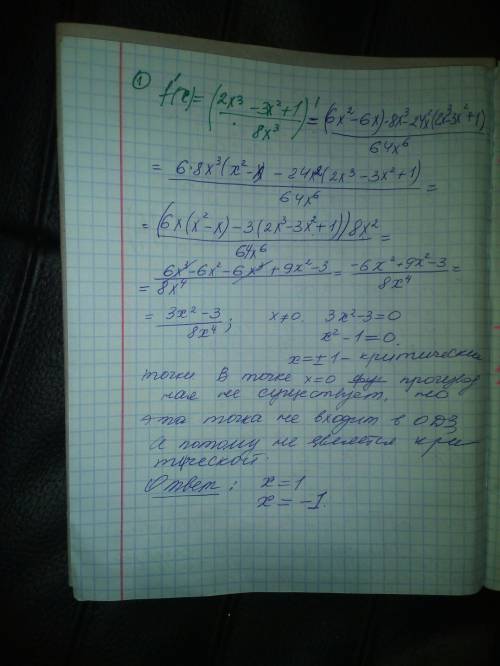 ①
f'(x) = ((2x³ - 3x² + 1)/(8x³))' = ((6x² - 6x)·8x³ - 24x²(2x³ - 3x² + 1))/(64x⁶)
= (6·8x³(x² - x) - 24x²(2x³ - 3x² + 1))/(64x⁶) =
= ((6x(x² - x) - 3(2x³ - 3x² + 1))8x²)/(64x⁶) =
= (6x³ - 6x² - 6x³ + 9x² - 3)/(8x⁴) = (-6x² + 9x² - 3)/(8x⁴) =
= (3x² - 3)/(8x⁴); x≠0, 3x² - 3 = 0
x² - 1 = 0
x = ±1 - критические
точки В точке x = 0 производ
ная не существует, но
эта точка не входит в ОДЗ,
а потому не является кри
тической.
Ответ: x = 1
x = -1.